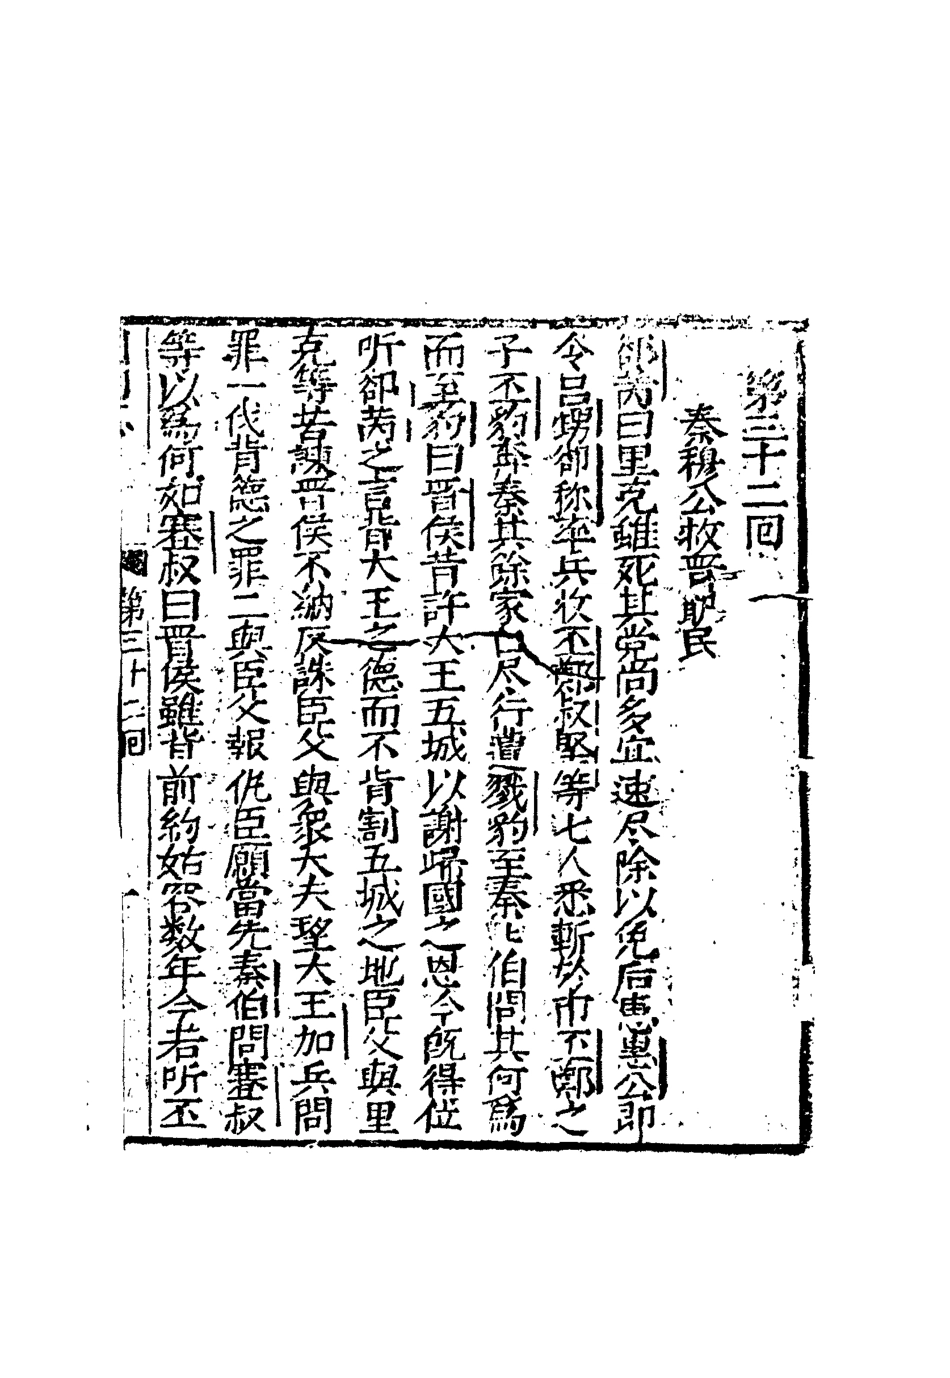 第三十二回
秦穆公救晋卹民
郤芮曰里克雖死其党尚多宜速尽除以免后患惠公即
令吕甥卻称率兵收丕鄭叔堅等七人悉斬於市丕鄭之
子丕豹奔秦其餘家口尽行遭戮豹至秦伯問其何為
而至豹曰晋侯昔許大王五城以謝帰國之恩今旣得位
听卻芮之言背大王之德而不肯割五城之地臣父與里
克等苦諫晋侯不納反誅臣父與衆大夫望大王加兵問
罪一代背德之罪二與臣父報仇臣願當先秦伯問蹇叔
等以為何如蹇叔曰晋侯雖背前約姑容数年今若听丕
第三十二回